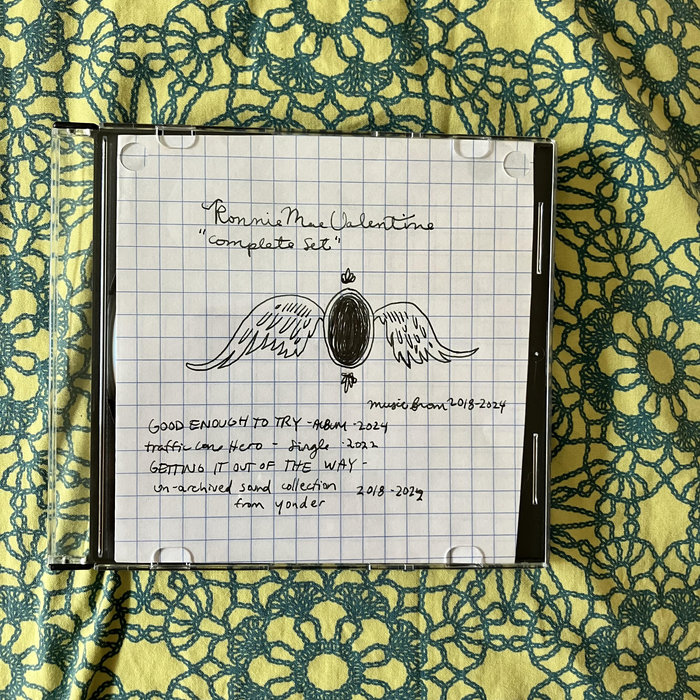 Ronnie Mae Valentine
"complete set"
music from 2018-2024
GOOD ENOUGH TO TRY - ALBUM - 2024
traffic cone Hero - single - 2022
GETTING IT OUT OF THE WAY -
un-archived sound collection 2018-2022
from yonder